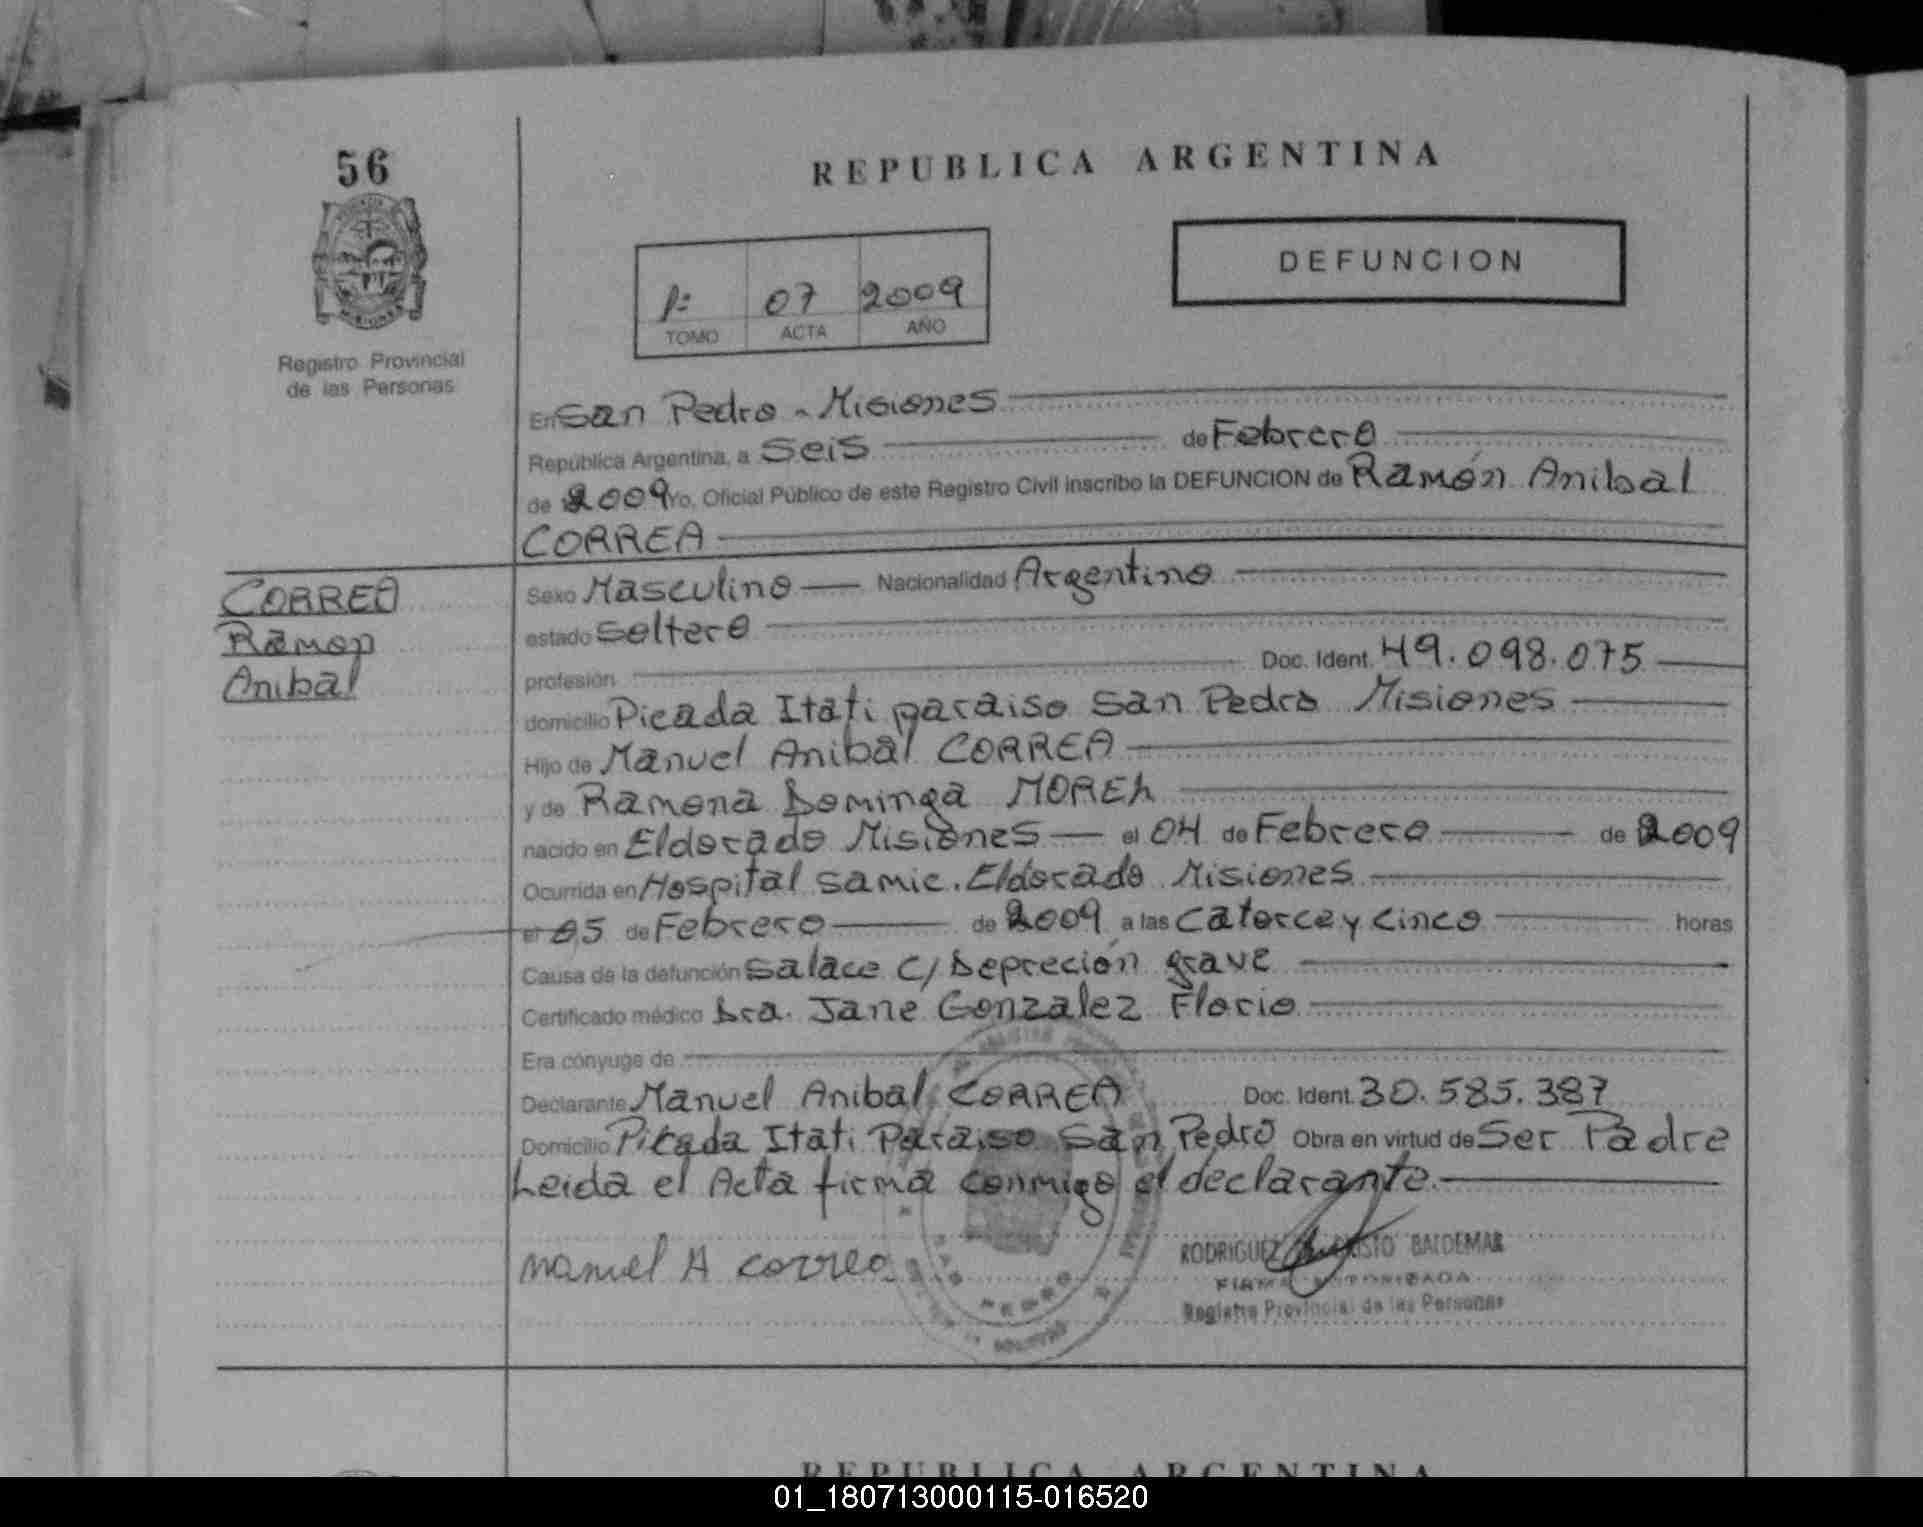 56
REPUBLICA ARGENTINA
DEFUNCION
1: 07 2009
TOMO ACTA AÑO
Registro Provincial
de las Personas
En San Pedro - Misiones
República Argentina, a Seis de Febrero
de 2009 Yo, Oficial Público de este Registro Civil inscribo la DEFUNCION de Ramón Anibal
CORREA
CORREA
Ramon
Anibal
Sexo Masculino Nacionalidad Argentino
estado Soltero
profesión Doc. Ident. 49.098.075
domicilio Picada Itati paraiso San Pedro Misiones
Hijo de Manuel Anibal CORREA
y de Ramona Dominga
nacido en Eldorado Misiones el 04 de Febrero de 2009
Ocurrida en Hospital samic. Eldorado Misiones
el 05 de Febrero de 2009 a las Catorce y Cinco horas
Causa de la defunción C/ Depreción grave
Certificado médico Dra. Jane Gonzalez Florio
Era cónyuge de
Declarante Manuel Anibal CORREA Doc. Ident. 30.585.387
Domicilio Picada Itati Paraiso San Pedro Obra en virtud de Ser Padre
Leida el Acta firma conmigo el declarante.
manuel A correa
RODRIGUEZ BALDEMAR
FIRMA AUTORIZADA
Registro Provincial de las Personas
REPUBLICA ARGENTINA
01_180713000115-016520